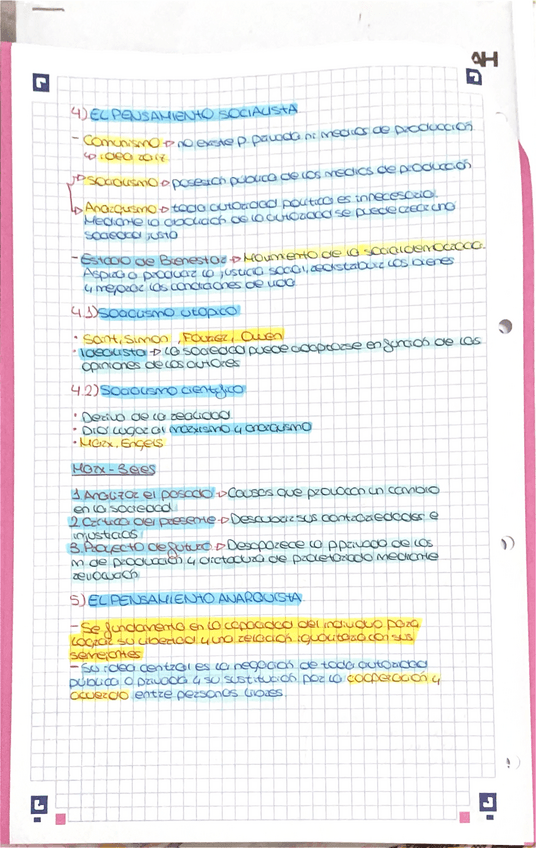 4) EL PENSAMIENTO SOCIALISTA
- Comunismo → no existe p. privada ni medios de producción
↳ idea raíz
→ Socialismo → posesión pública de los medios de producción
↳ Anarquismo → toda autoridad política es innecesaria.
Mediante la abolición de la autoridad se puede crear una
sociedad justa
- Estado de Bienestar → Movimento de la socialdemocracia.
Aspira a producir la justicia social, redistribuir los bienes
y mejorar las condiciones de vida
4.1) Socialismo utópico
· Saint, Simon, Fourier, Owen
· Idealista → La sociedad puede adaptarse en función de las
opiniones de los autores
4.2) Socialismo científico
· Deriva de la realidad
· Dio lugar al marxismo y anarquismo
· Marx, Engels
Marx - Bases
1. Analizar el pasado → Causas que provocan un cambio
en la sociedad
2. Crítica del presente → Descubrir sus contrariedades e
injusticias
3. Proyecto de futuro → Desaparece la p privada de los
m de producción y dictadura de proletariado mediante
revolución
5) EL PENSAMIENTO ANARQUISTA
- Se fundamenta en la capacidad del individuo para
lograr su libertad y una relación igualitaria con sus
semejantes
- Su idea central es la negación de toda autoridad
pública o privada y su sustitución por la cooperación y
acuerdo entre personas libres